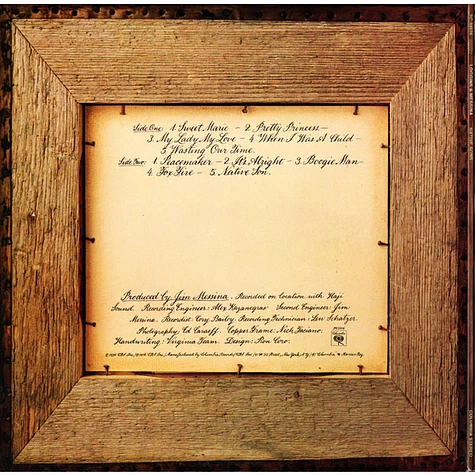 Side One: 1. Sweet Marie – 2. Pretty Princess –
3. My Lady, My Love – 4. When I Was A Child –
5. Wasting Our Time.
Side Two: 1. Peacemaker – 2. It's Alright – 3. Boogie Man –
4. Fox Fire – 5. Native Son.
Produced by Jim Messina. Recorded on location with Haji
Sound. Recording Engineer: Alex Kazanegras. Second Engineer: Jim
Messina. Recordist: Cory Bailey. Recording Technician: Len Schatzer.
Photography: Ed Caraeff. Copper Frame: Nick Fasciano.
Handwriting: Virginia Team. Design: Ron Coro.
Inc. Manufactured by Columbia Records / CBS Inc. / 51 W. 52 Street, New York, N.Y. / Columbia, Marcas Reg.